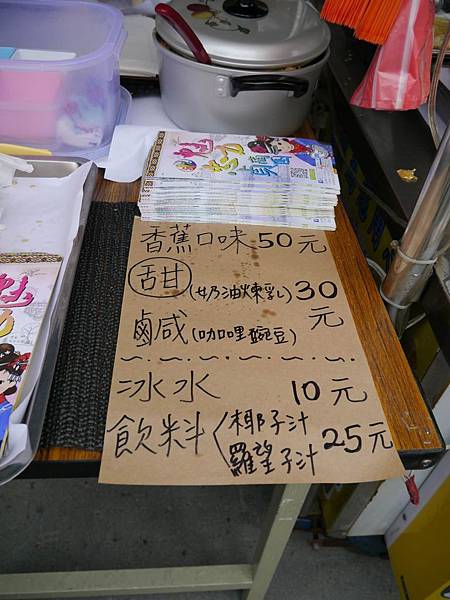 魅力
香蕉口味 50元
甜 (奶油煉乳) 30元
鹵咸 (咖哩豌豆)
冰水 10元
飲料 椰子汁 25元
羅望子汁
魅力